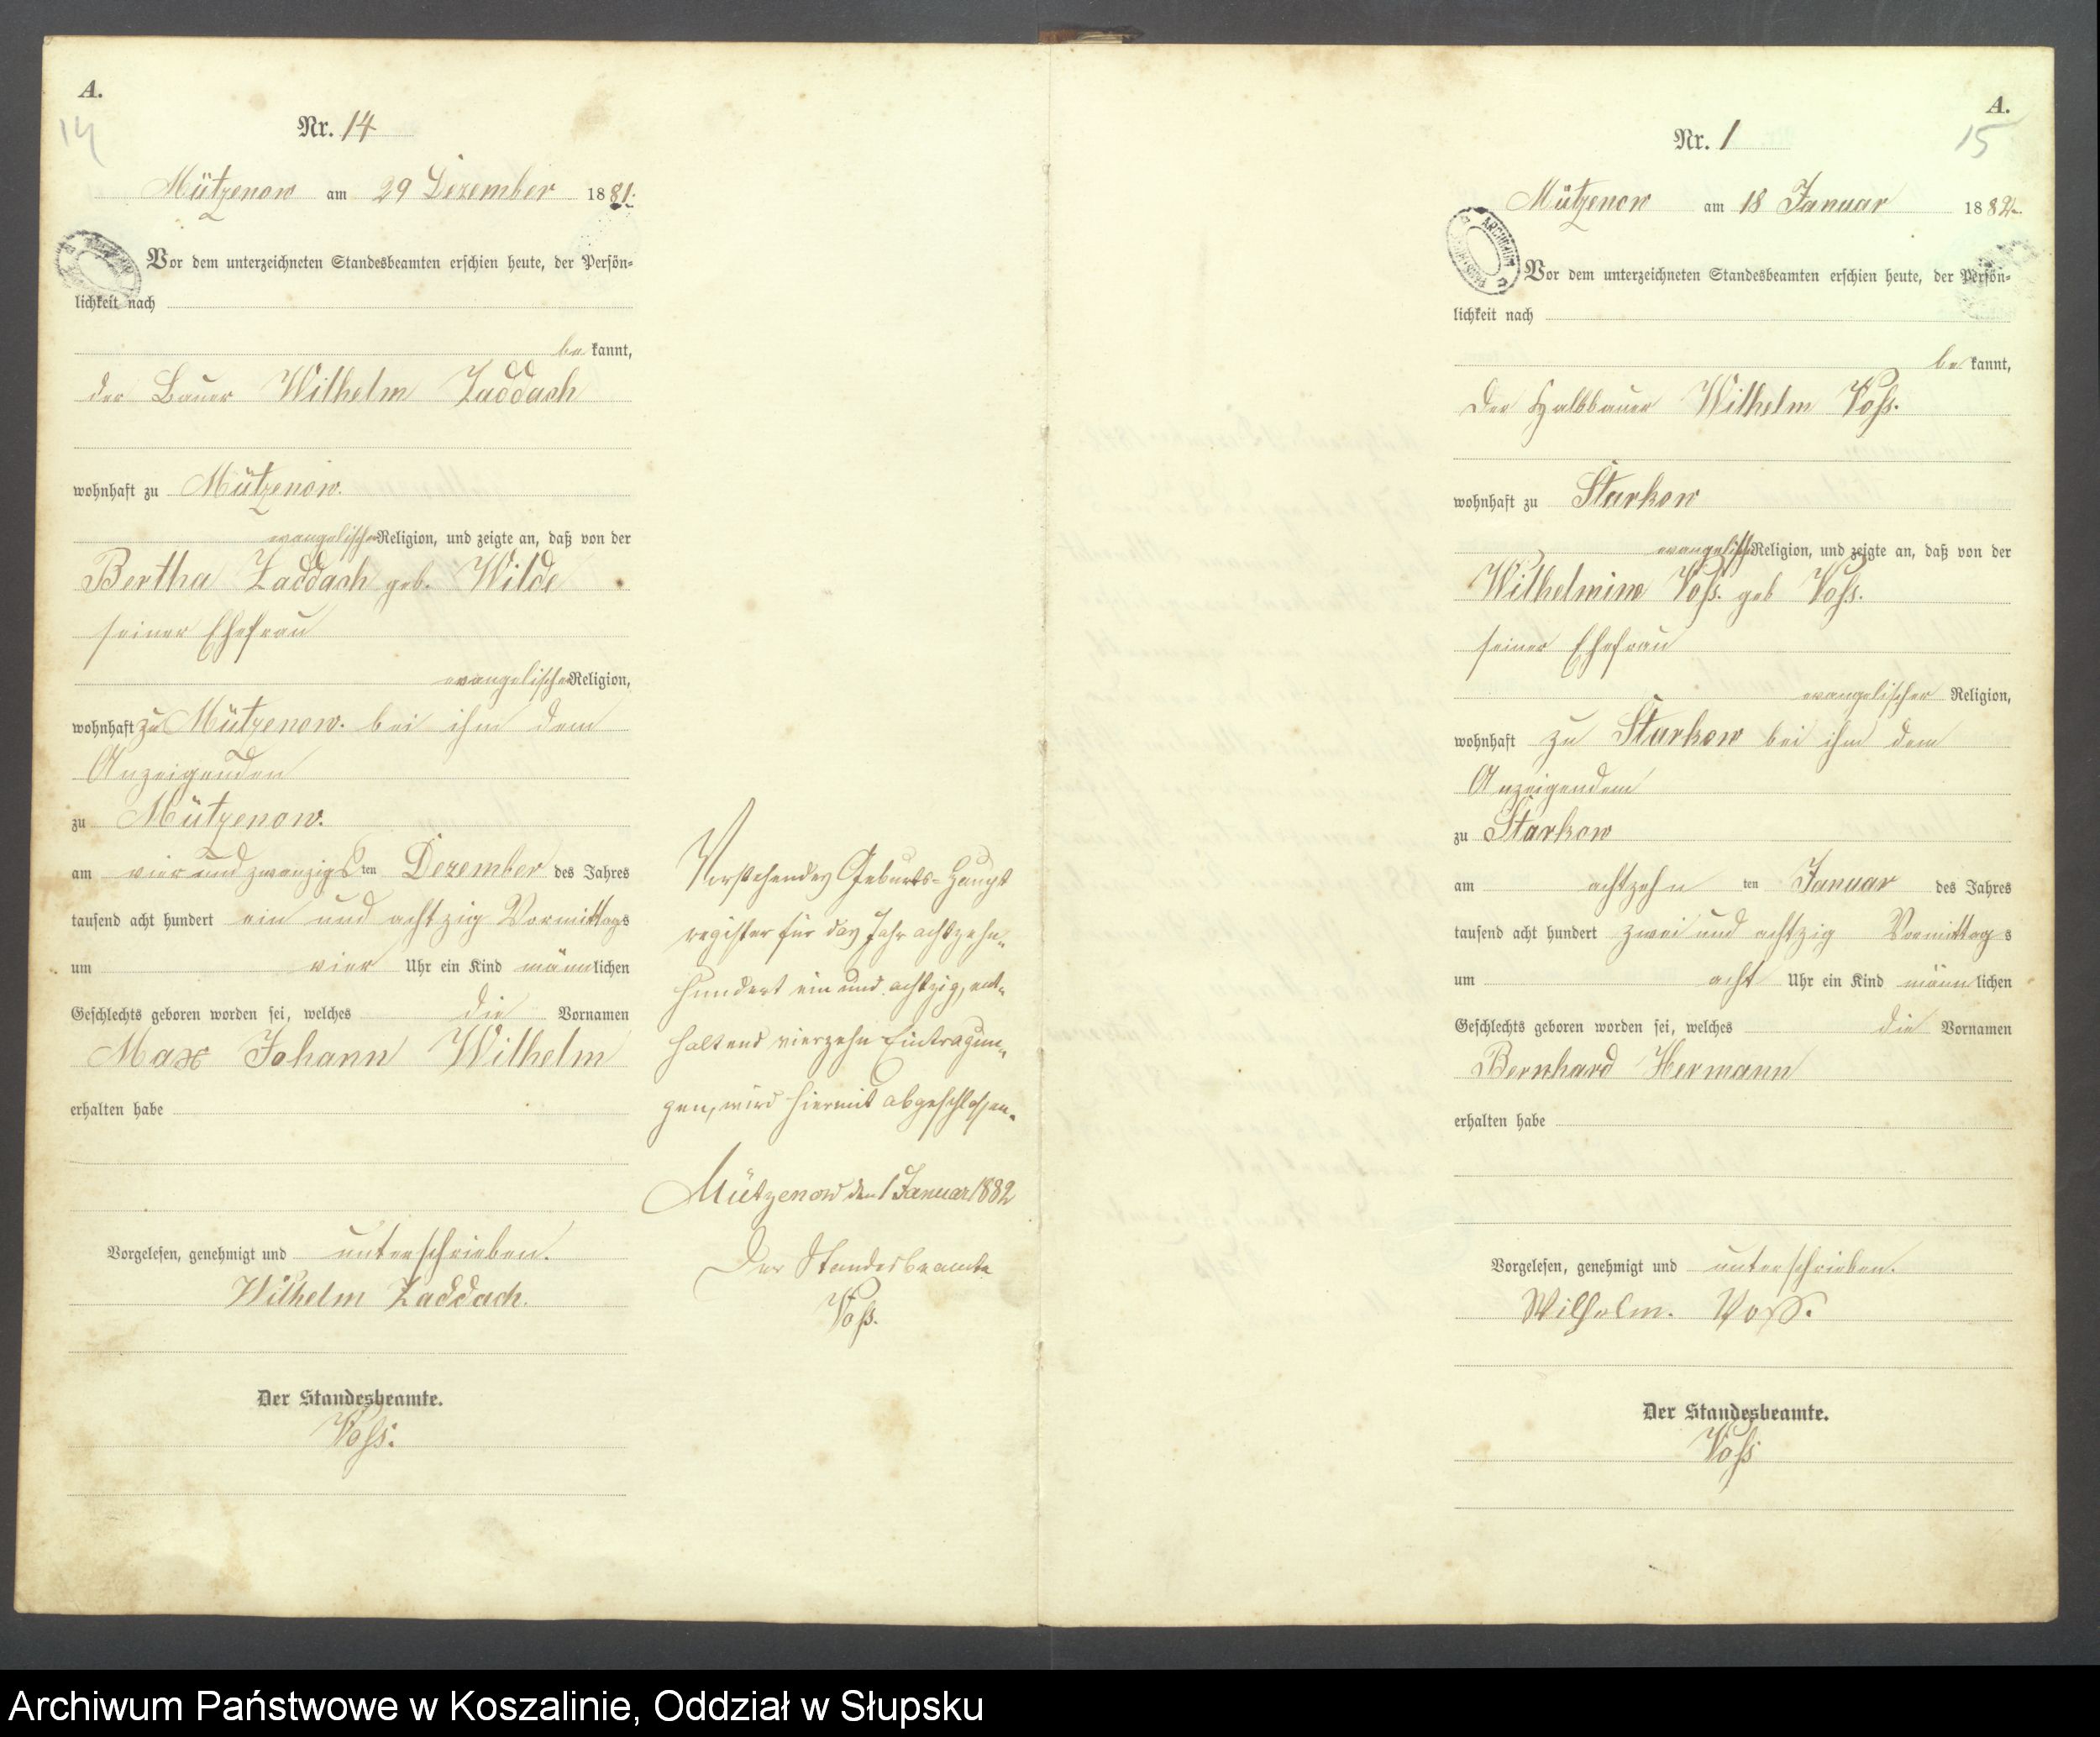 A.
14
Nr. 14
Mützenow am 29 Dezember 1881.
Vor dem unterzeichneten Standesbeamten erschien heute, der Persön-
lichkeit nach
be kannt,
der Bauer Wilhelm Zaddach
wohnhaft zu Mützenow.
evangelischer Religion, und zeigte an, daß von der
Bertha Zaddach geb. Wilde
seiner Ehefrau
evangelischer Religion,
wohnhaft zu Mützenow. bei ihm dem
Anzeigenden
zu Mützenow.
am vier und zwanzigsten Dezember des Jahres
tausend acht hundert ein und achtzig Vormittags
um vier Uhr ein Kind männlichen
Geschlechts geboren worden sei, welches die Vornamen
Max Johann Wilhelm
erhalten habe
Vorgelesen, genehmigt und unterschrieben.
Wilhelm Zaddach.
Der Standesbeamte.
Voß.
Vorstehendes Geburts-Haupt
register für das Jahr achtzehn-
hundert ein und achtzig, ent-
haltend vierzehn Eintragun-
gen, wird hiermit abgeschlossen.
Mützenow den 1 Januar 1882
Der Standesbeamte
Voß.
A.
15
Nr. 1
Mützenow am 18 Januar 1882.
ARCHIWUM
Vor dem unterzeichneten Standesbeamten erschien heute, der Persön-
lichkeit nach
be kannt,
Der Halbbauer Wilhelm Voß.
wohnhaft zu Starkow
evangelischer Religion, und zeigte an, daß von der
Wilhelmine Voß. geb Voß.
seiner Ehefrau
evangelischer Religion,
wohnhaft zu Starkow bei ihm dem
Anzeigendem
zu Starkow
am achtzehn ten Januar des Jahres
tausend acht hundert zwei und achtzig Vormittags
um acht Uhr ein Kind männlichen
Geschlechts geboren worden sei, welches die Vornamen
Bernhard Hermann
erhalten habe
Vorgelesen, genehmigt und unterschrieben.
Wilhelm. Voß.
Der Standesbeamte.
Voß
Archiwum Państwowe w Koszalinie, Oddział w Słupsku